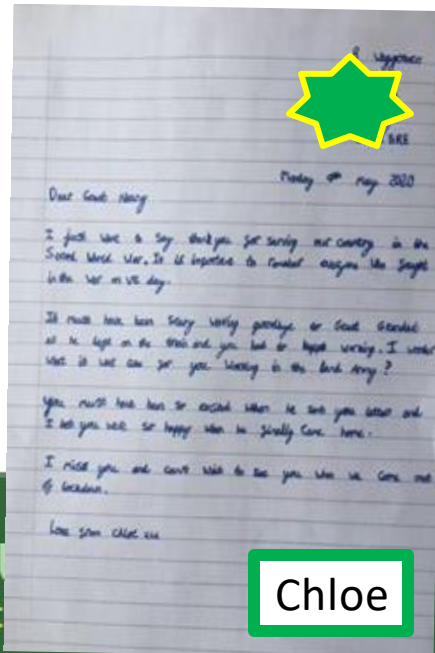 BRE
Monday May 2020
Dear Great Nanny
I just want to say thank you for serving our country in the
Second World War. It is important to everyone who fought
in the war on VE day.
It must have been scary waving goodbye to Great Grandad
as he left on the train and you had to keep working. I wonder
what it was like for you working in the Land Army?
You must have been so excited when he sent you letters and
I bet you were so happy when he finally came home.
I miss you and can't wait to see you when we come out
of lockdown.
Love from Chloe xxx
Chloe